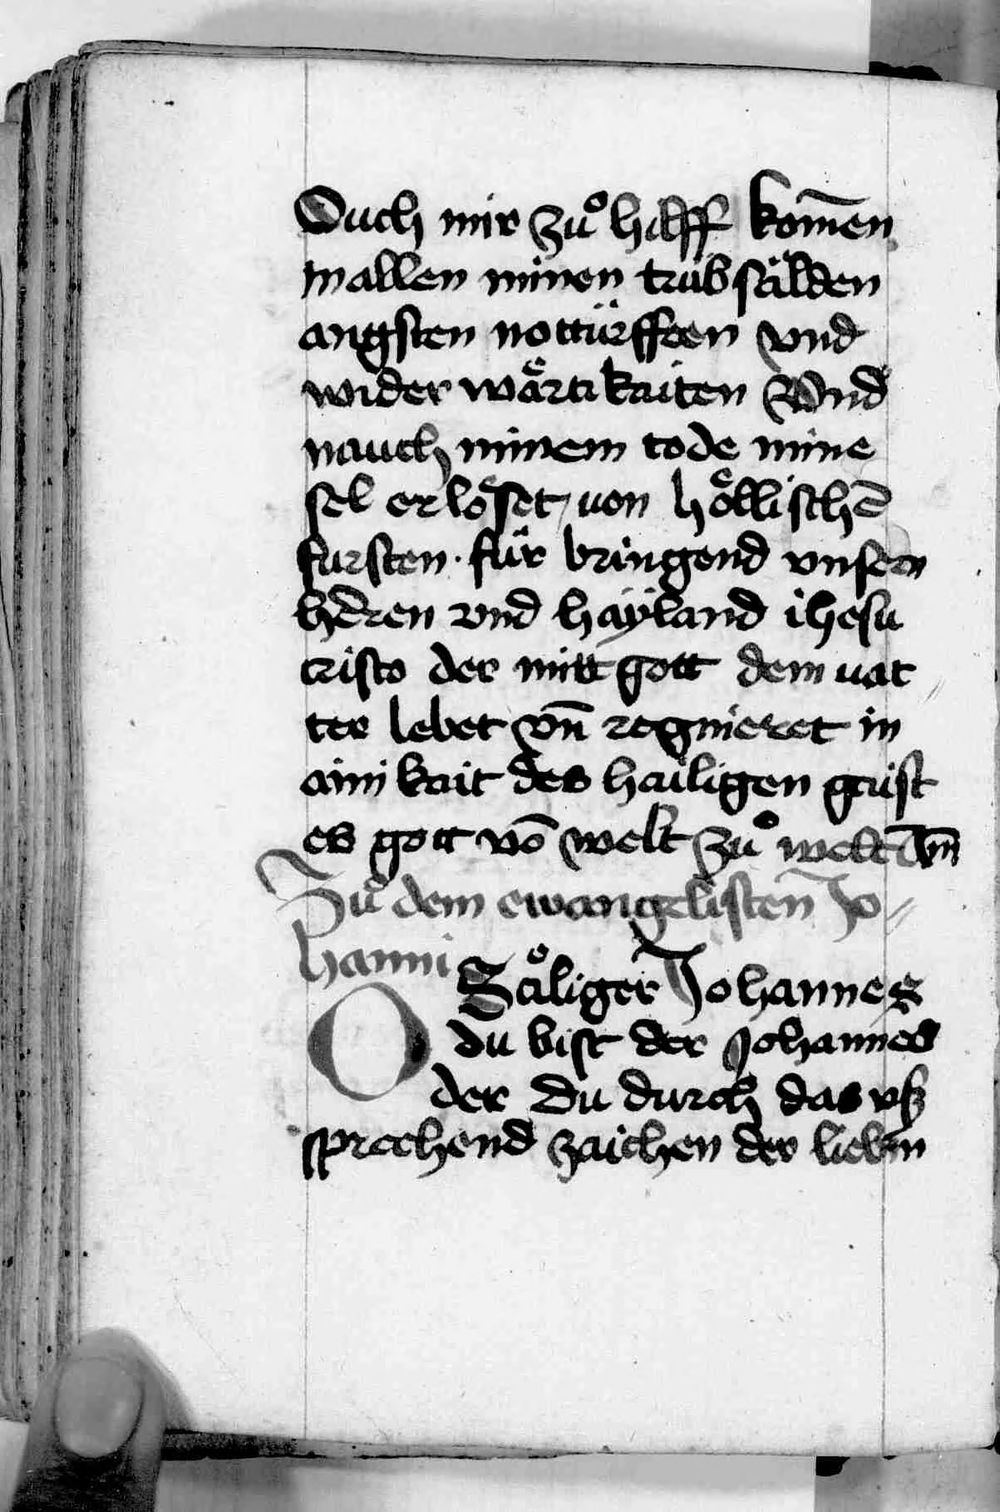 Ouch mir zuͦ hilff kom̄en
in allen minen trübsälden
angsten nottürfften vnd
wider wäͤrtikaiten Vnd
nauch minem tode mine
sel erlöͤset von höͤllischē
fursten · für bringend vnsern
hēren vnd hayland ihesu
cristo der mitt gott dem uat
ter lebet vn̄ regnieret in
ainikait des hailigen gaist
es gott vō welt zuͦ welt Am̄
Zuͦ dem ewangelisten Jo⸗
hanni
O Säͤliger Johannes
du bist der Johannes
der du durch das vß
sprechend zaichen der lieben